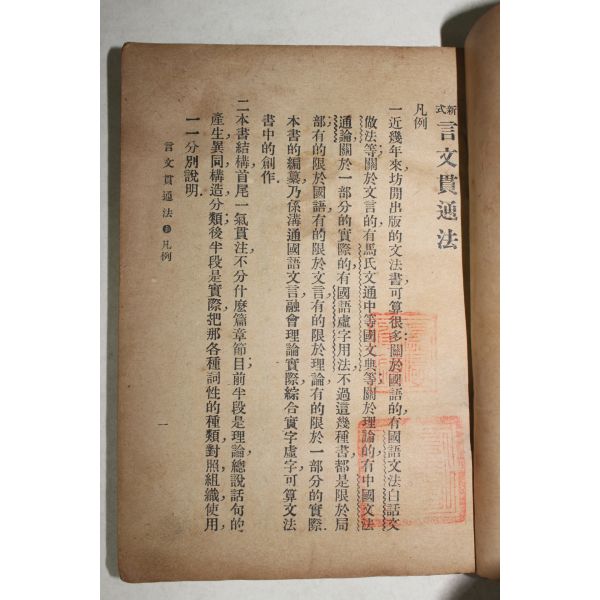 新式 言文貫通法
凡例
一近幾年來坊間出版的文法書,可算很多,關於國語的,有國語文法,白話文
做法等,關於文言的,有馬氏文通,中等國文典等,關於理論的,有中國文法
通論,關於一部分的實際的,有國語虛字用法,不過這幾種書,都是限於局
部,有的限於國語,有的限於文言,有的限於理論,有的限於一部分的實際.
本書的編纂,乃係溝通國語文言,融會理論實際,綜合實字虛字,可算文法
書中的創作.
二本書結構,首尾一氣貫注,不分什麼篇章節目;前半段是理論,總說話句的
產生,異同,構造,分類,後半段是實際,把那各種詞性的種類,對照組織使用,
一一分別說明.
言文貫通法 凡例
一